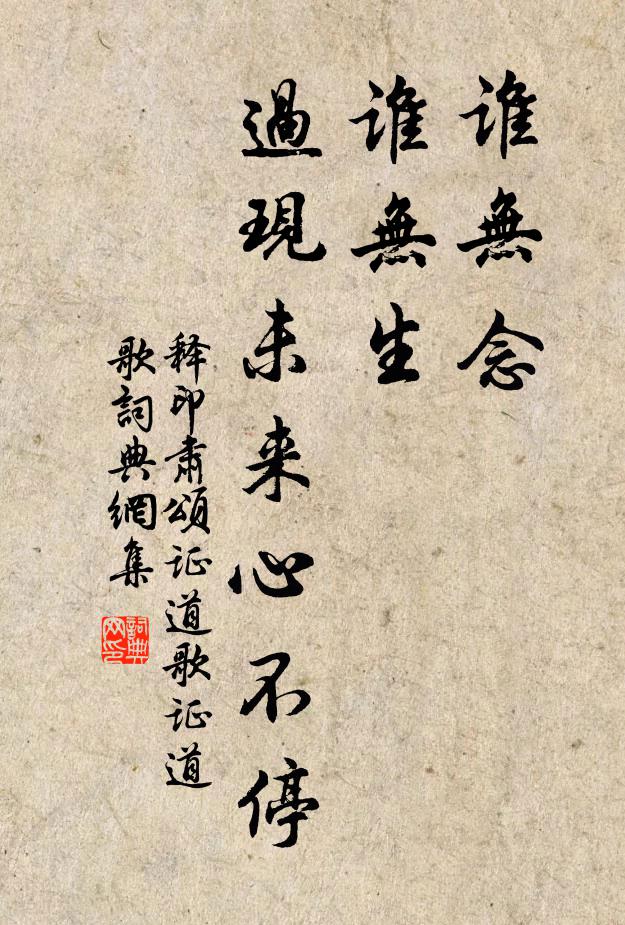 誰無念
誰無生
過現未来心不停
释印肅頌证道歌证道
歌詞典網集
詞典
网印